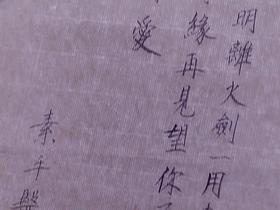 明離火劍一用
緣再見望你
愛
素手